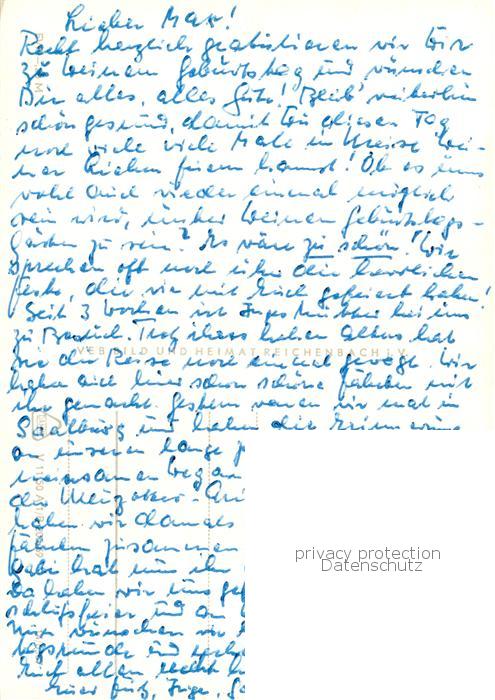 Lieber Max!
Recht herzlich gratulieren wir Dir
zu Deinem Geburtstag und wünschen
Dir alles, alles Gute! Bleib' weiterhin
schön gesund, damit Du diesen Tag
noch viele viele Male im Kreise Dei-
ner Lieben feiern kannst! Ob es uns
wohl auch wieder einmal möglich
sein wird, unter Deinen Geburtstags-
gästen zu sein? Es wäre zu schön! Wir
sprechen oft noch über die herrlichen
Feste, die wir mit Euch gefeiert haben!
Seit 3 Wochen ist Inges Mutter bei uns
zu Besuch. Trotz ihres hohen Alters hat
VEB BILD UND HEIMAT REICHENBACH I. V.
sie die Reise noch einmal gewagt. Wir
haben auch hier schon schöne Fahrten mit
ihr gemacht. Gestern waren wir mal in
Saalburg und haben die
an unseren lange
meinsamen Weg an
des
haben wir damals
fahren zusammen
Gabi hat nun ihr
Da haben wir uns
und an
Nun wünschen wir
und
Euch allen recht
Euer Fritz, Inge,
privacy protection
Datenschutz